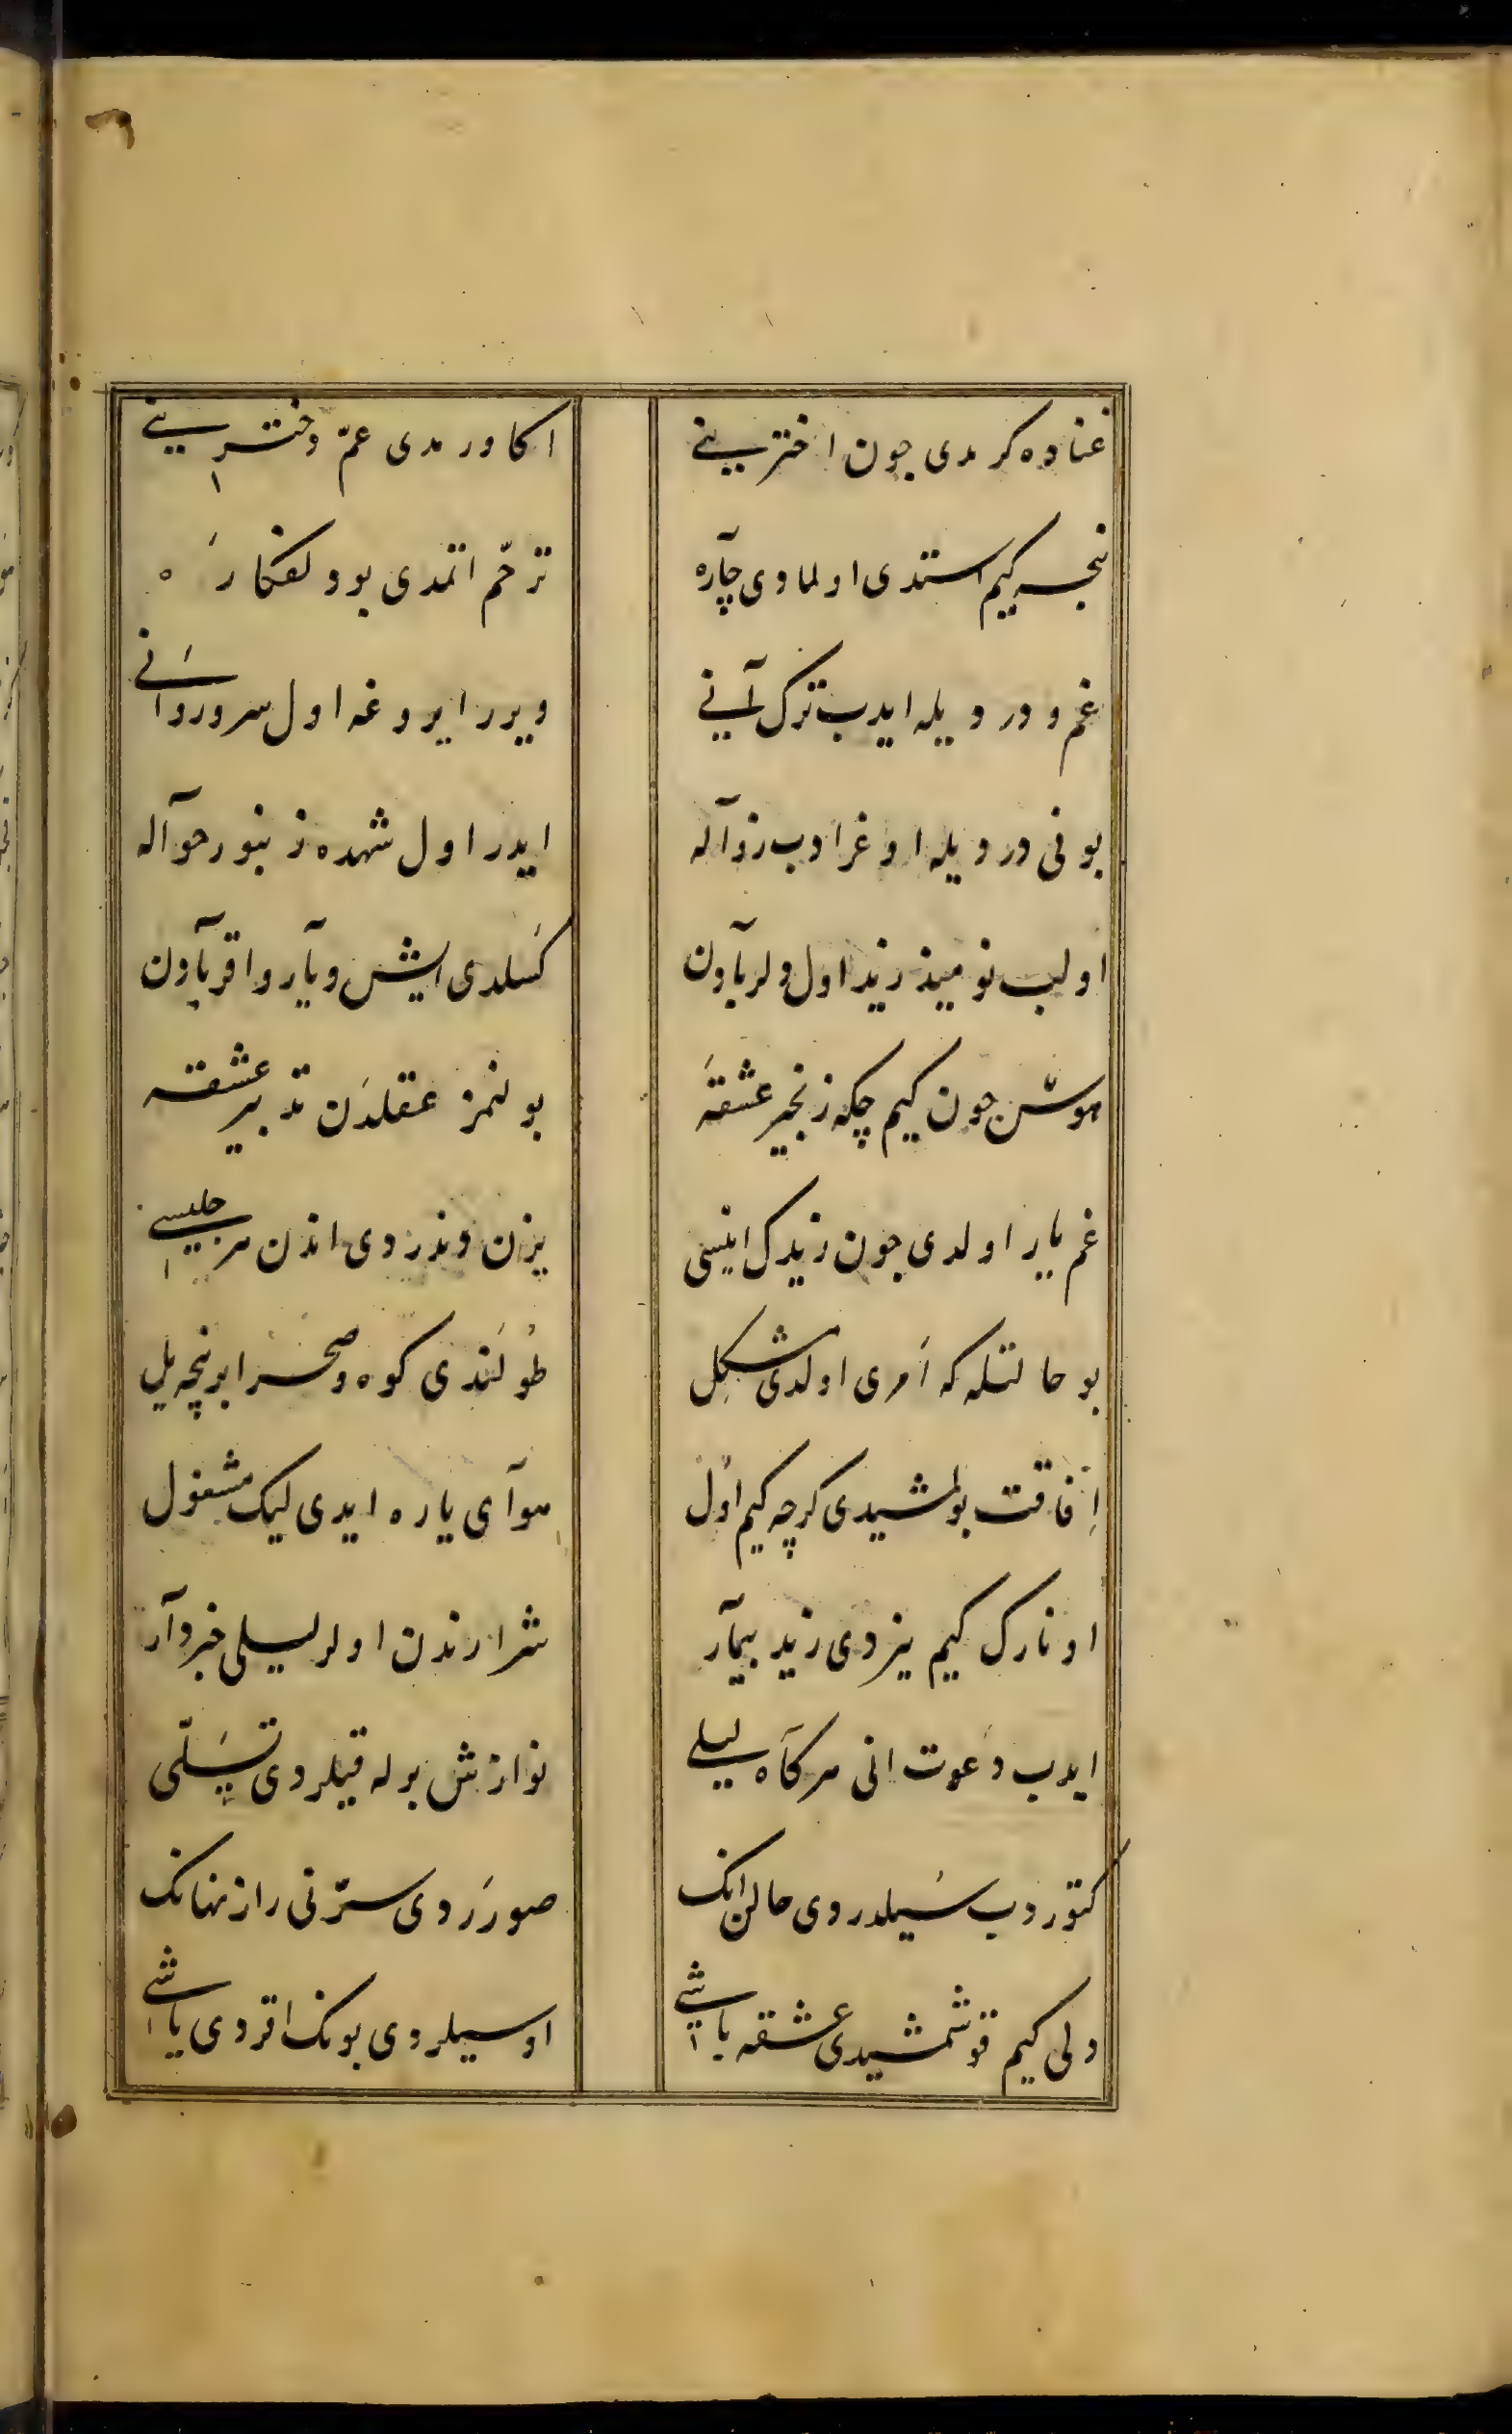 غناده کرمدی چون اخترینے
اکا ورمدی عمّ دخترینے
نجه کیم استدی اولمادی چآره
ترحّم اتمدی بو دلفکاره
غم و دردیله ایدب ترک آنے
ویرر ایروغه اول سرو روانے
بونی دردیله اوغرادب زوآله
ایدر اول شهده زنبور حوآله
اولب نومیذ زید اول دلربادن
کسلدی ایش و یآر و اقربآدن
هوشن چون کیم چکه زنجیر عشقه
بولنمز عقلدن تدبیر عشقه
غم یار اولدی چون زیدک انیسی
بزندندردی اندن هر جلیسے
بو حالتله که اَمری اولدی مشکل
طولندی کوه و صحرا بر نچه یل
اِفاقت بولمشیدی کرچه کیم اول
هوآی یاره ایدی لیک مشغول
اونارک کیم یزدی زید بیمآر
شرارندن اولر لیلی خبردآر
ایدب دعوت انی هر کآه لیلے
نوازش برله قیلردی تسلّی
کتوردب سیلدردی حالن انک
صورردی سرّنی راز نهانک
دلی کیم قوشمشیدی عشقه باشے
اوسیلردی بونک اقردی یاشے